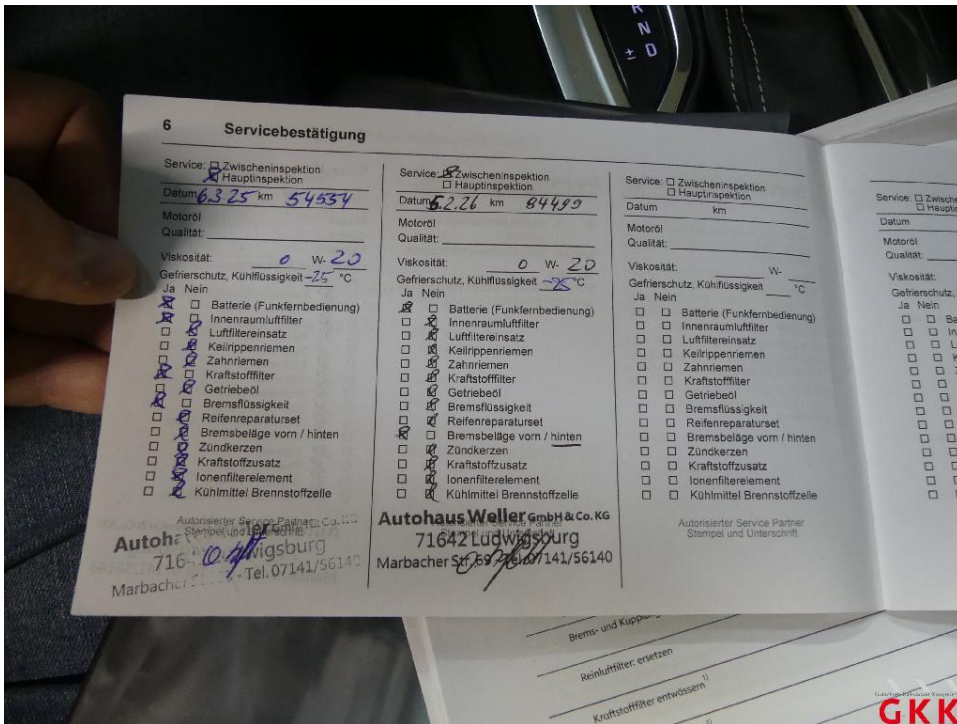 R
N
± D
6 Servicebestätigung
Service: Zwischeninspektion
Hauptinspektion
Datum 6.3.25 km 54554
Motoröl
Qualität:
Viskosität: 0 W- 20
Gefrierschutz, Kühlflüssigkeit -25 °C
Ja Nein
Batterie (Funkfernbedienung)
Innenraumluftfilter
Luftfiltereinsatz
Keilrippenriemen
Zahnriemen
Kraftstofffilter
Getriebeöl
Bremsflüssigkeit
Reifenreparaturset
Bremsbeläge vorn / hinten
Zündkerzen
Kraftstoffzusatz
Ionenfilterelement
Kühlmittel Brennstoffzelle
Autorisierter Service Partner
Stempel und Unterschrift
Marbacher
Tel. 07141/56140
Service: Zwischeninspektion
Hauptinspektion
Datum 5.2.26 km 84499
Motoröl
Qualität:
Viskosität: 0 W- 20
Gefrierschutz, Kühlflüssigkeit -25 °C
Ja Nein
Batterie (Funkfernbedienung)
Innenraumluftfilter
Luftfiltereinsatz
Keilrippenriemen
Zahnriemen
Kraftstofffilter
Getriebeöl
Bremsflüssigkeit
Reifenreparaturset
Bremsbeläge vorn / hinten
Zündkerzen
Kraftstoffzusatz
Ionenfilterelement
Kühlmittel Brennstoffzelle
Autorisierter Service Partner
Stempel und Unterschrift
Autohaus Weller GmbH & Co. KG
71642 Ludwigsburg
Marbacher Str. 69 - Tel. 07141/56140
Service: Zwischeninspektion
Hauptinspektion
Datum km
Motoröl
Qualität:
Viskosität: W-
Gefrierschutz, Kühlflüssigkeit °C
Ja Nein
Batterie (Funkfernbedienung)
Innenraumluftfilter
Luftfiltereinsatz
Keilrippenriemen
Zahnriemen
Kraftstofffilter
Getriebeöl
Bremsflüssigkeit
Reifenreparaturset
Bremsbeläge vorn / hinten
Zündkerzen
Kraftstoffzusatz
Ionenfilterelement
Kühlmittel Brennstoffzelle
Autorisierter Service Partner
Stempel und Unterschrift
Service:
Datum
Motoröl
Qualität:
Viskosität:
Gefrierschutz,
Ja Nein
Brems- und
Reinluftfilter: ersetzen
Kraftstofffilter entwässern 1)
GKK